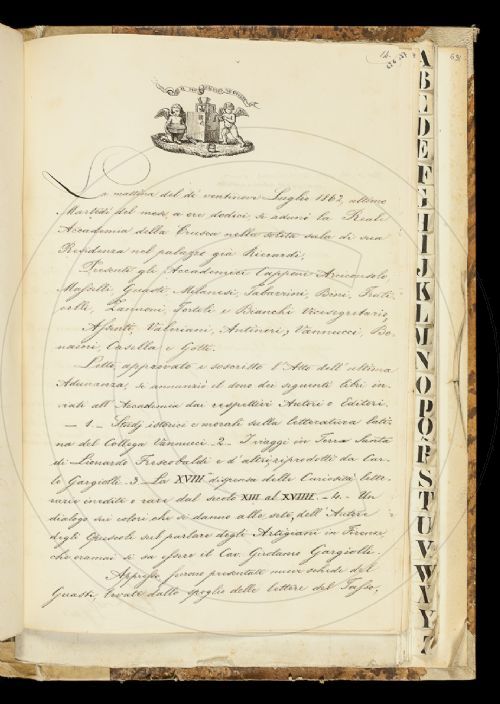 14.
631
La mattina del dì ventinove Luglio 1862, ultimo
Martedì del mese, a ore dodici, si adunò la Reale
Accademia della Crusca nella solita sala di sua
Residenza nel palazzo già Riccardi.
Presenti gli Accademici Capponi Arciconsolo
Maselli, Guasti, Milanesi, Tabarrini, Bini, Frati-
celli, Zannoni, Tortoli e Bianchi Vicesegretario;
Assenti, Valeriani, Antinori, Vannucci, Bo-
naini, Casella e Gotti.
Letto, approvato e soscritto l'Atto dell'ultima
Adunanza, si annunziò il dono dei seguenti libri in-
viati all'Accademia dai respettivi Autori o Editori.
— 1 — Studj istorici e morali sulla letteratura lati-
na del Collega Vannucci. 2 — I viaggi in Terra Santa
di Lionardo Frescobaldi e d'altri, riprodotti da Car-
lo Gargiolli. 3 — La XVIII dispensa delle Curiosità lette-
rarie inedite o rare dal secolo XIII al XVIIII. — 4 — Un
dialogo dei colori che si danno alla seta, dell'Autore
degli Opuscoli sul parlare degli Artigiani in Firenze,
che oramai si sa essere il Cav. Girolamo Gargiolli.
Appresso furono presentate nuove schede del
Guasti, levate dallo spoglio delle lettere del Tasso,
A
B
C
D
E
F
G
H
I
J
K
L
M
N
O
P
Q
R
S
T
U
V
W
X
Y
Z